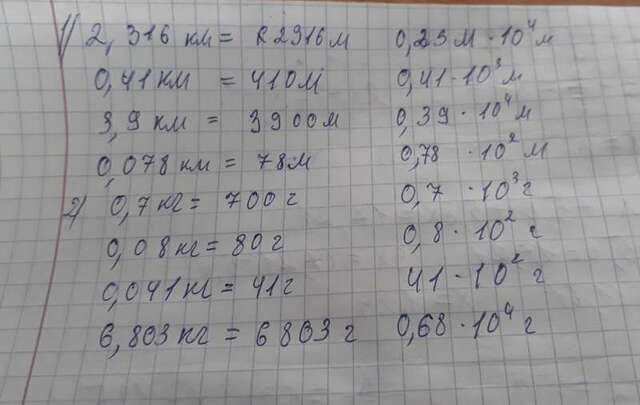 1) 2,316 км = 2316 м 0,23 м · 10⁴ м
0,41 км = 410 м 0,41 · 10³ м
3,9 км = 3900 м 0,39 · 10⁴ м
0,078 км = 78 м 0,78 · 10² м
2) 0,7 кг = 700 г 0,7 · 10³ г
0,08 кг = 80 г 0,8 · 10² г
0,041 кг = 41 г 41 · 10² г
6,803 кг = 6803 г 0,68 · 10⁴ г